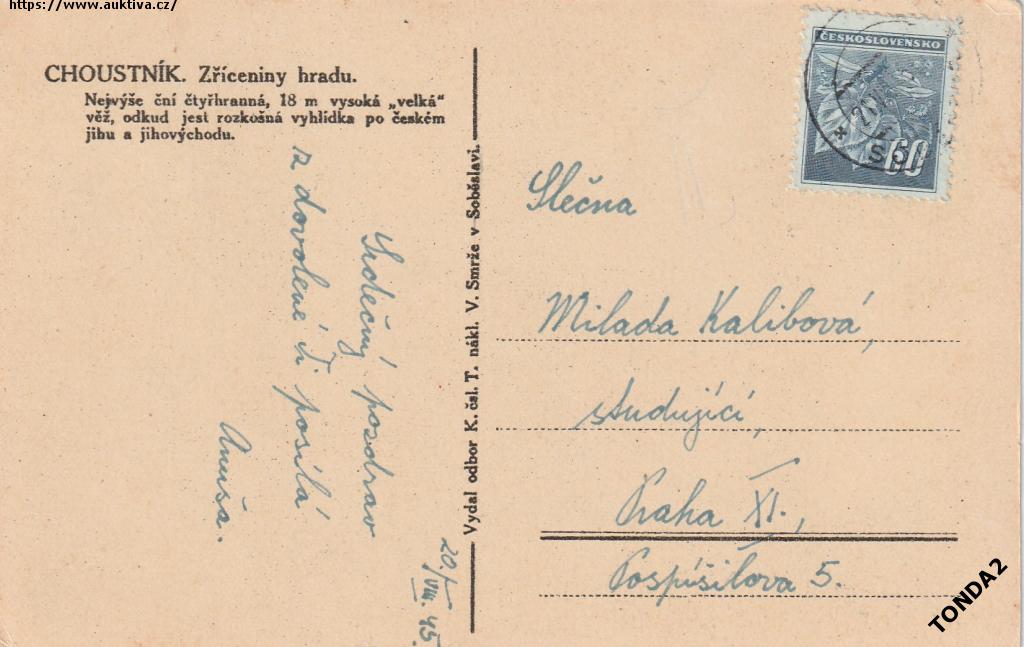 https://www.auktiva.cz/
CHOUSTNÍK. Zříceniny hradu.
Nejvýše ční čtyřhranná, 18 m vysoká „velká“
věž, odkud jest rozkošná vyhlídka po českém
jihu a jihovýchodu.
20./VIII. 45.
Srdečný pozdrav
z dovolené Ti posílá
Anuša.
Vydal odbor K. čsl. T. nákl. V. Smrže v Soběslavi.
ČESKOSLOVENSKO
60
Slečna
Milada Kalibová,
studující,
Praha XI.,
Pospíšilova 5.
TONDA2